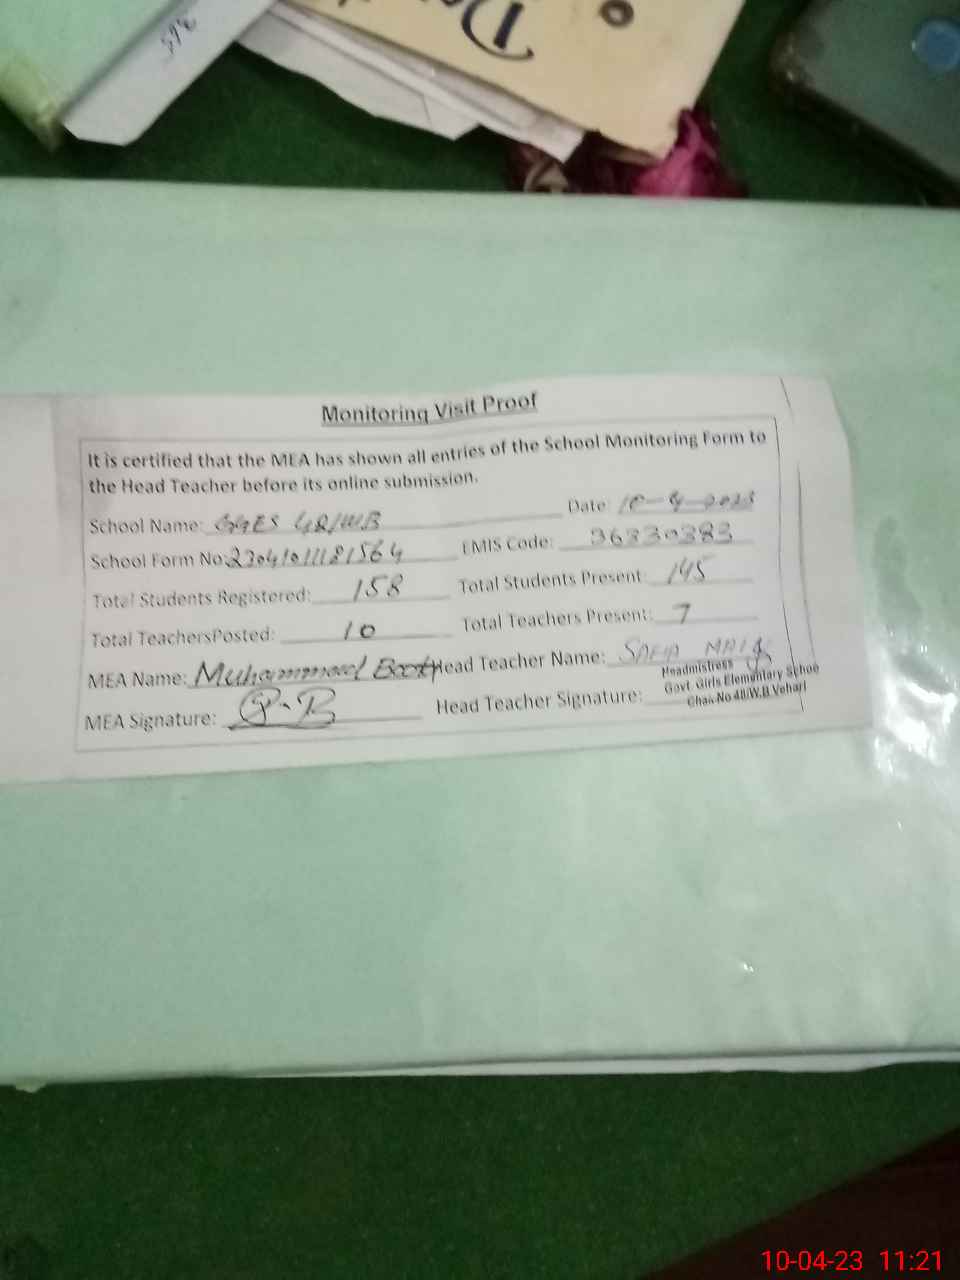 592
Monitoring Visit Proof
It is certified that the MEA has shown all entries of the School Monitoring Form to
the Head Teacher before its online submission.
School Name: GGES 48/WB Date: 10-4-2023
School Form No: 2304101181564 EMIS Code: 36330383
Total Students Registered: 158 Total Students Present: 145
Total TeachersPosted: 10 Total Teachers Present: 7
MEA Name: Muhammad Head Teacher Name:
MEA Signature: Head Teacher Signature:
Headmistress
Govt. Girls Elementary Schoo
Chak No 48/W.B Vehari
10-04-23 11:21